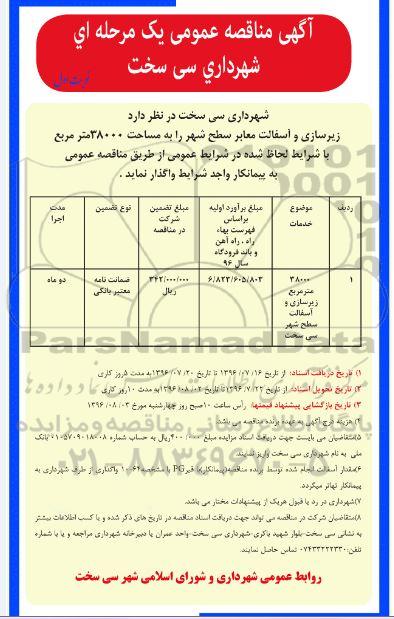 آگهی مناقصه عمومی یک مرحله ای
شهرداري سی سخت
نوبت اول
شهرداری سی سخت در نظر دارد
زیرسازی و آسفالت معابر سطح شهر را به مساحت ۳۸۰۰۰متر مربع
با شرایط لحاظ شده در شرایط عمومی از طریق مناقصه عمومی
به پیمانکار واجد شرایط واگذار نماید .
ردیف
موضوع
خدمات
مبلغ برآورد اولیه
براساس
فهرست بهاء
راه ، راه آهن
و باند فرودگاه
سال ۹۶
مبلغ تضمین
شرکت
در مناقصه
نوع تضمین
مدت
اجرا
۱
۳۸۰۰۰
مترمربع
زیرسازی و
آسفالت
سطح شهر
سی سخت
۶/۸۲۳/۶۰۵/۸۰۳
۳۴۲/۰۰۰/۰۰۰
ریال
ضمانت نامه
معتبر بانکی
دو ماه
ParsNamadData
۱) تاریخ دریافت اسناد: از تاریخ ۱۳۹۶/۰۷/۱۶ تا تاریخ ۱۳۹۶/۰۷/۲۰به مدت ۵روز کاری
۲) تاریخ تحویل اسناد: از تاریخ ۱۳۹۶/۷/۲۲ تا تاریخ ۱۳۹۶/۰۸/۰۲ به مدت ۱۰روز کاری
۳) تاریخ بازگشایی پیشنهاد قیمتها: رأس ساعت ۱۰صبح روز چهارشنبه مورخ ۱۳۹۶/۰۸/۰۳
۴) هزینه درج آگهی به عهده برنده مناقصه می باشد.
۵)متقاضیان می بایست جهت دریافت اسناد مزایده مبلغ ۴۰۰/۰۰۰ریال به حساب شماره ۰۱۰۵۷۰۹۰۱۸۰۰۸ بانک
ملی به نام شهرداری سی سخت واریز نمایند.
۶)مقدار آسفالت انجام شده توسط برنده مناقصه(پیمانکار)با قیرPG با مشخصه ۲۲-۶۴ واگذاری از طرف شهرداری به
پیمانکار تهاتر میگردد.
۷)شهرداری در رد یا قبول هریک از پیشنهادات مختار می باشد.
۸)متقاضیان شرکت در مناقصه می تواند جهت دریافت اسناد مناقصه در تاریخ های ذکر شده و یا کسب اطلاعات بیشتر
به نشانی سی سخت-بلوار شهید باکری-شهرداری سی سخت-واحد عمران یا دبیرخانه شهرداری مراجعه و یا با شماره
تلفن:۰۷۴۳۳۲۲۲۳۳۰ تماس حاصل نمایند.
روابط عمومی شهرداری و شورای اسلامی شهر سی سخت